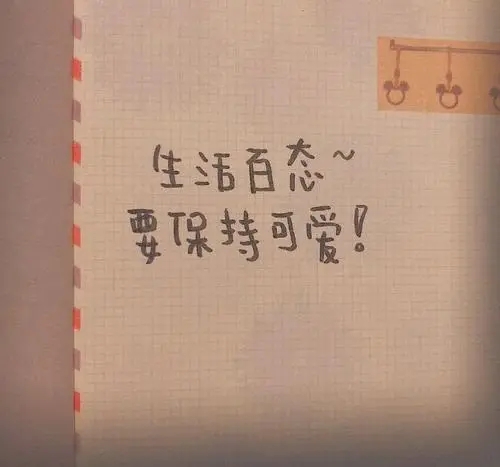 生活百态~
要保持可爱!